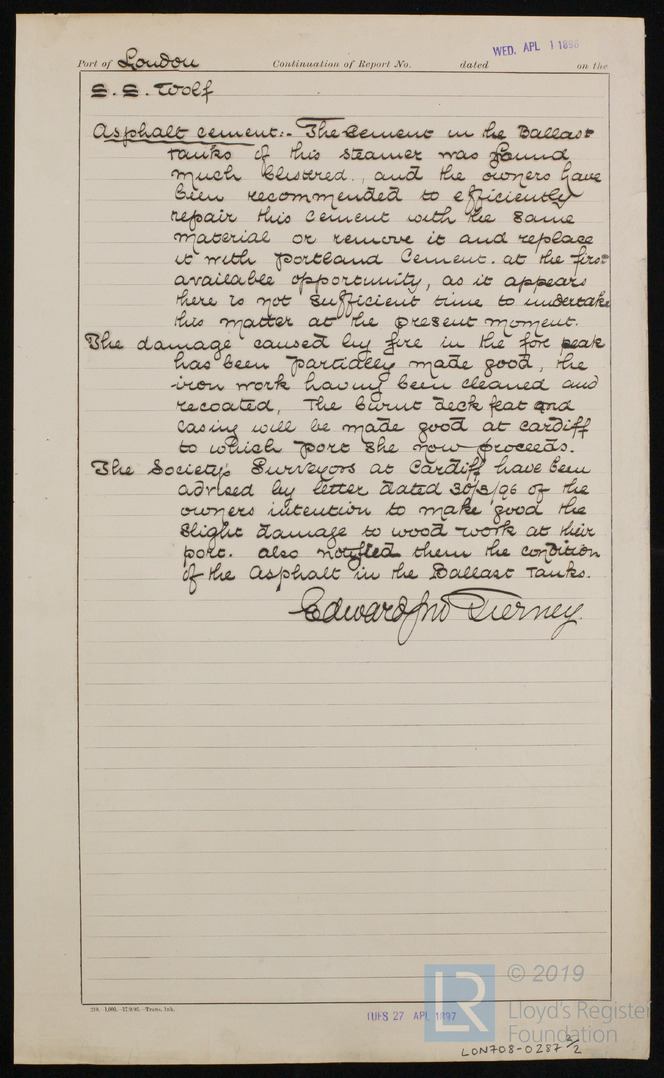 WED. APL 1 1896
Port of London Continuation of Report No. dated on the
S. S. Wolf
Asphalt cement:- The Cement in the Ballast
tanks of this steamer was found
much blistred., and the owners have
been recommended to efficiently
repair this cement with the same
material or remove it and replace
it with Portland Cement. at the first
available opportunity, as it appears
there is not sufficient time to undertake
this matter at the present moment.
The damage caused by fire in the fore peak
has been partially made good, the
iron work having been cleaned and
recoated, The burnt deck flat and
casing will be made good at Cardiff
to which port she now proceeds.
The Society's Surveyors at Cardiff have been
advised by letter dated 30/3/96 of the
owners intention to make good the
slight damage to wood work at their
port. also notified them the condition
of the Asphalt in the Ballast Tanks.
Edward Jno Tierney.
210.-1,000.-17/9/95.-Trans. Ink.
TUES 27 APL 1897
LR
© 2019
Lloyd's Register
Foundation
LON708-0287 2/2